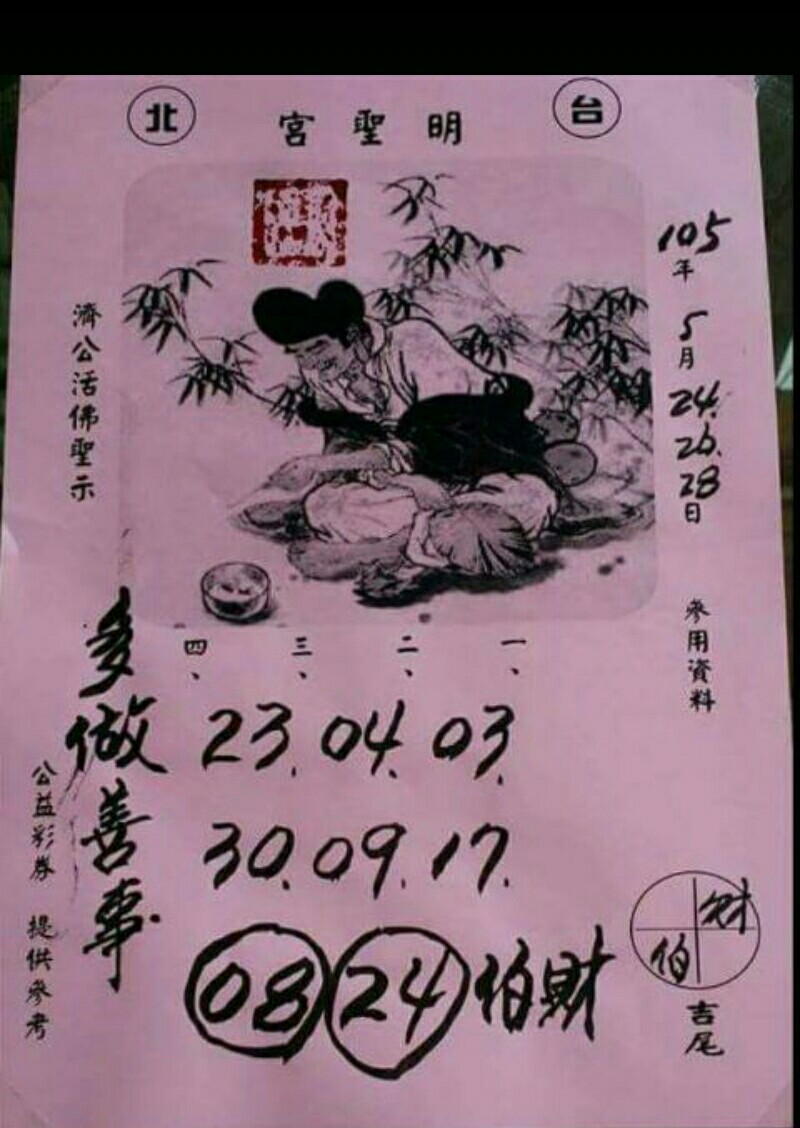 台北
明聖宮
105年5月24.26.28日
參用資料
濟公活佛聖示
一、二、三、四、
03.04.23
17.09.30
財伯 24 08
財伯
吉尾
多做善事
公益彩券 提供參考